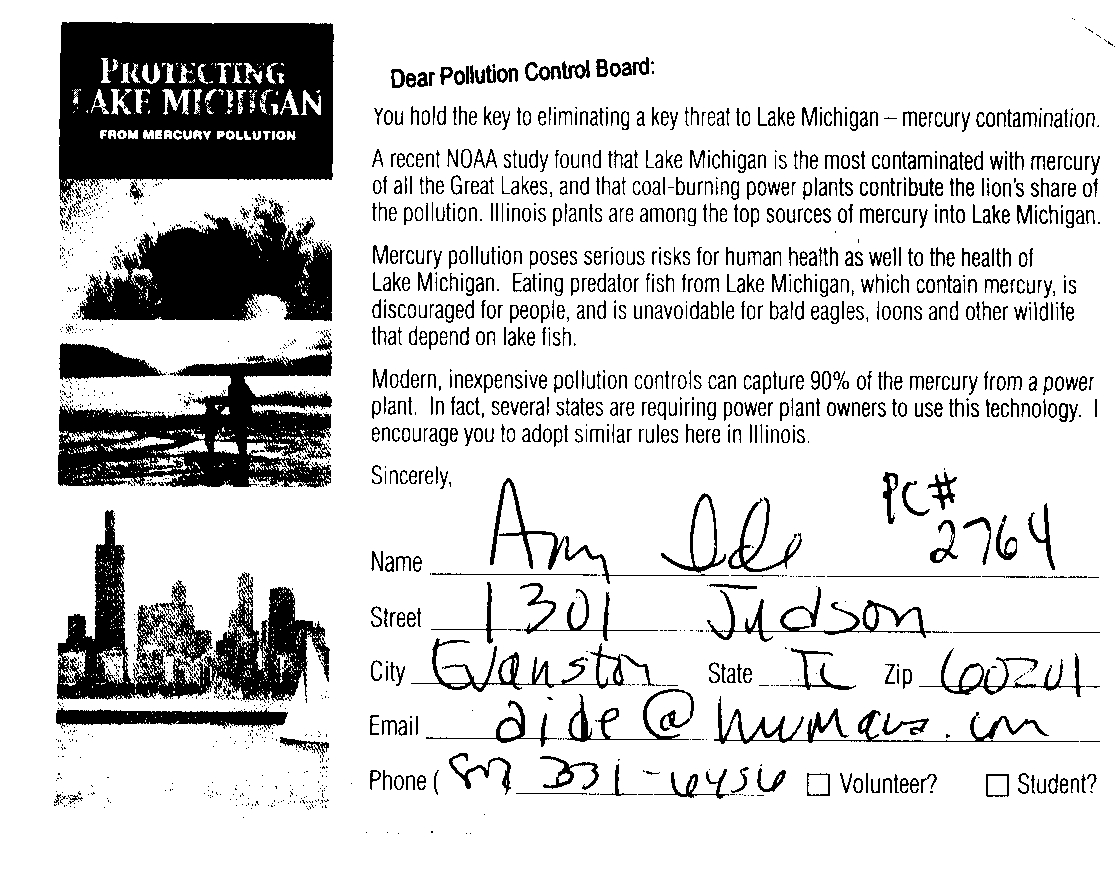 PROTECTING
LAKE MICHIGAN
FROM MERCURY POLLUTION
Dear Pollution Control Board:
You hold the key to eliminating a key threat to Lake Michigan – mercury contamination.
A recent NOAA study found that Lake Michigan is the most contaminated with mercury
of all the Great Lakes, and that coal-burning power plants contribute the lion's share of
the pollution. Illinois plants are among the top sources of mercury into Lake Michigan.
Mercury pollution poses serious risks for human health as well to the health of
Lake Michigan. Eating predator fish from Lake Michigan, which contain mercury, is
discouraged for people, and is unavoidable for bald eagles, loons and other wildlife
that depend on lake fish.
Modern, inexpensive pollution controls can capture 90% of the mercury from a power
plant. In fact, several states are requiring power plant owners to use this technology. I
encourage you to adopt similar rules here in Illinois.
Sincerely,
PC#
2764
Name Amy Ide
Street 1301 Judson
City Evanston State IL Zip 60201
Email
Phone ( 847 331-6456 Volunteer? Student?